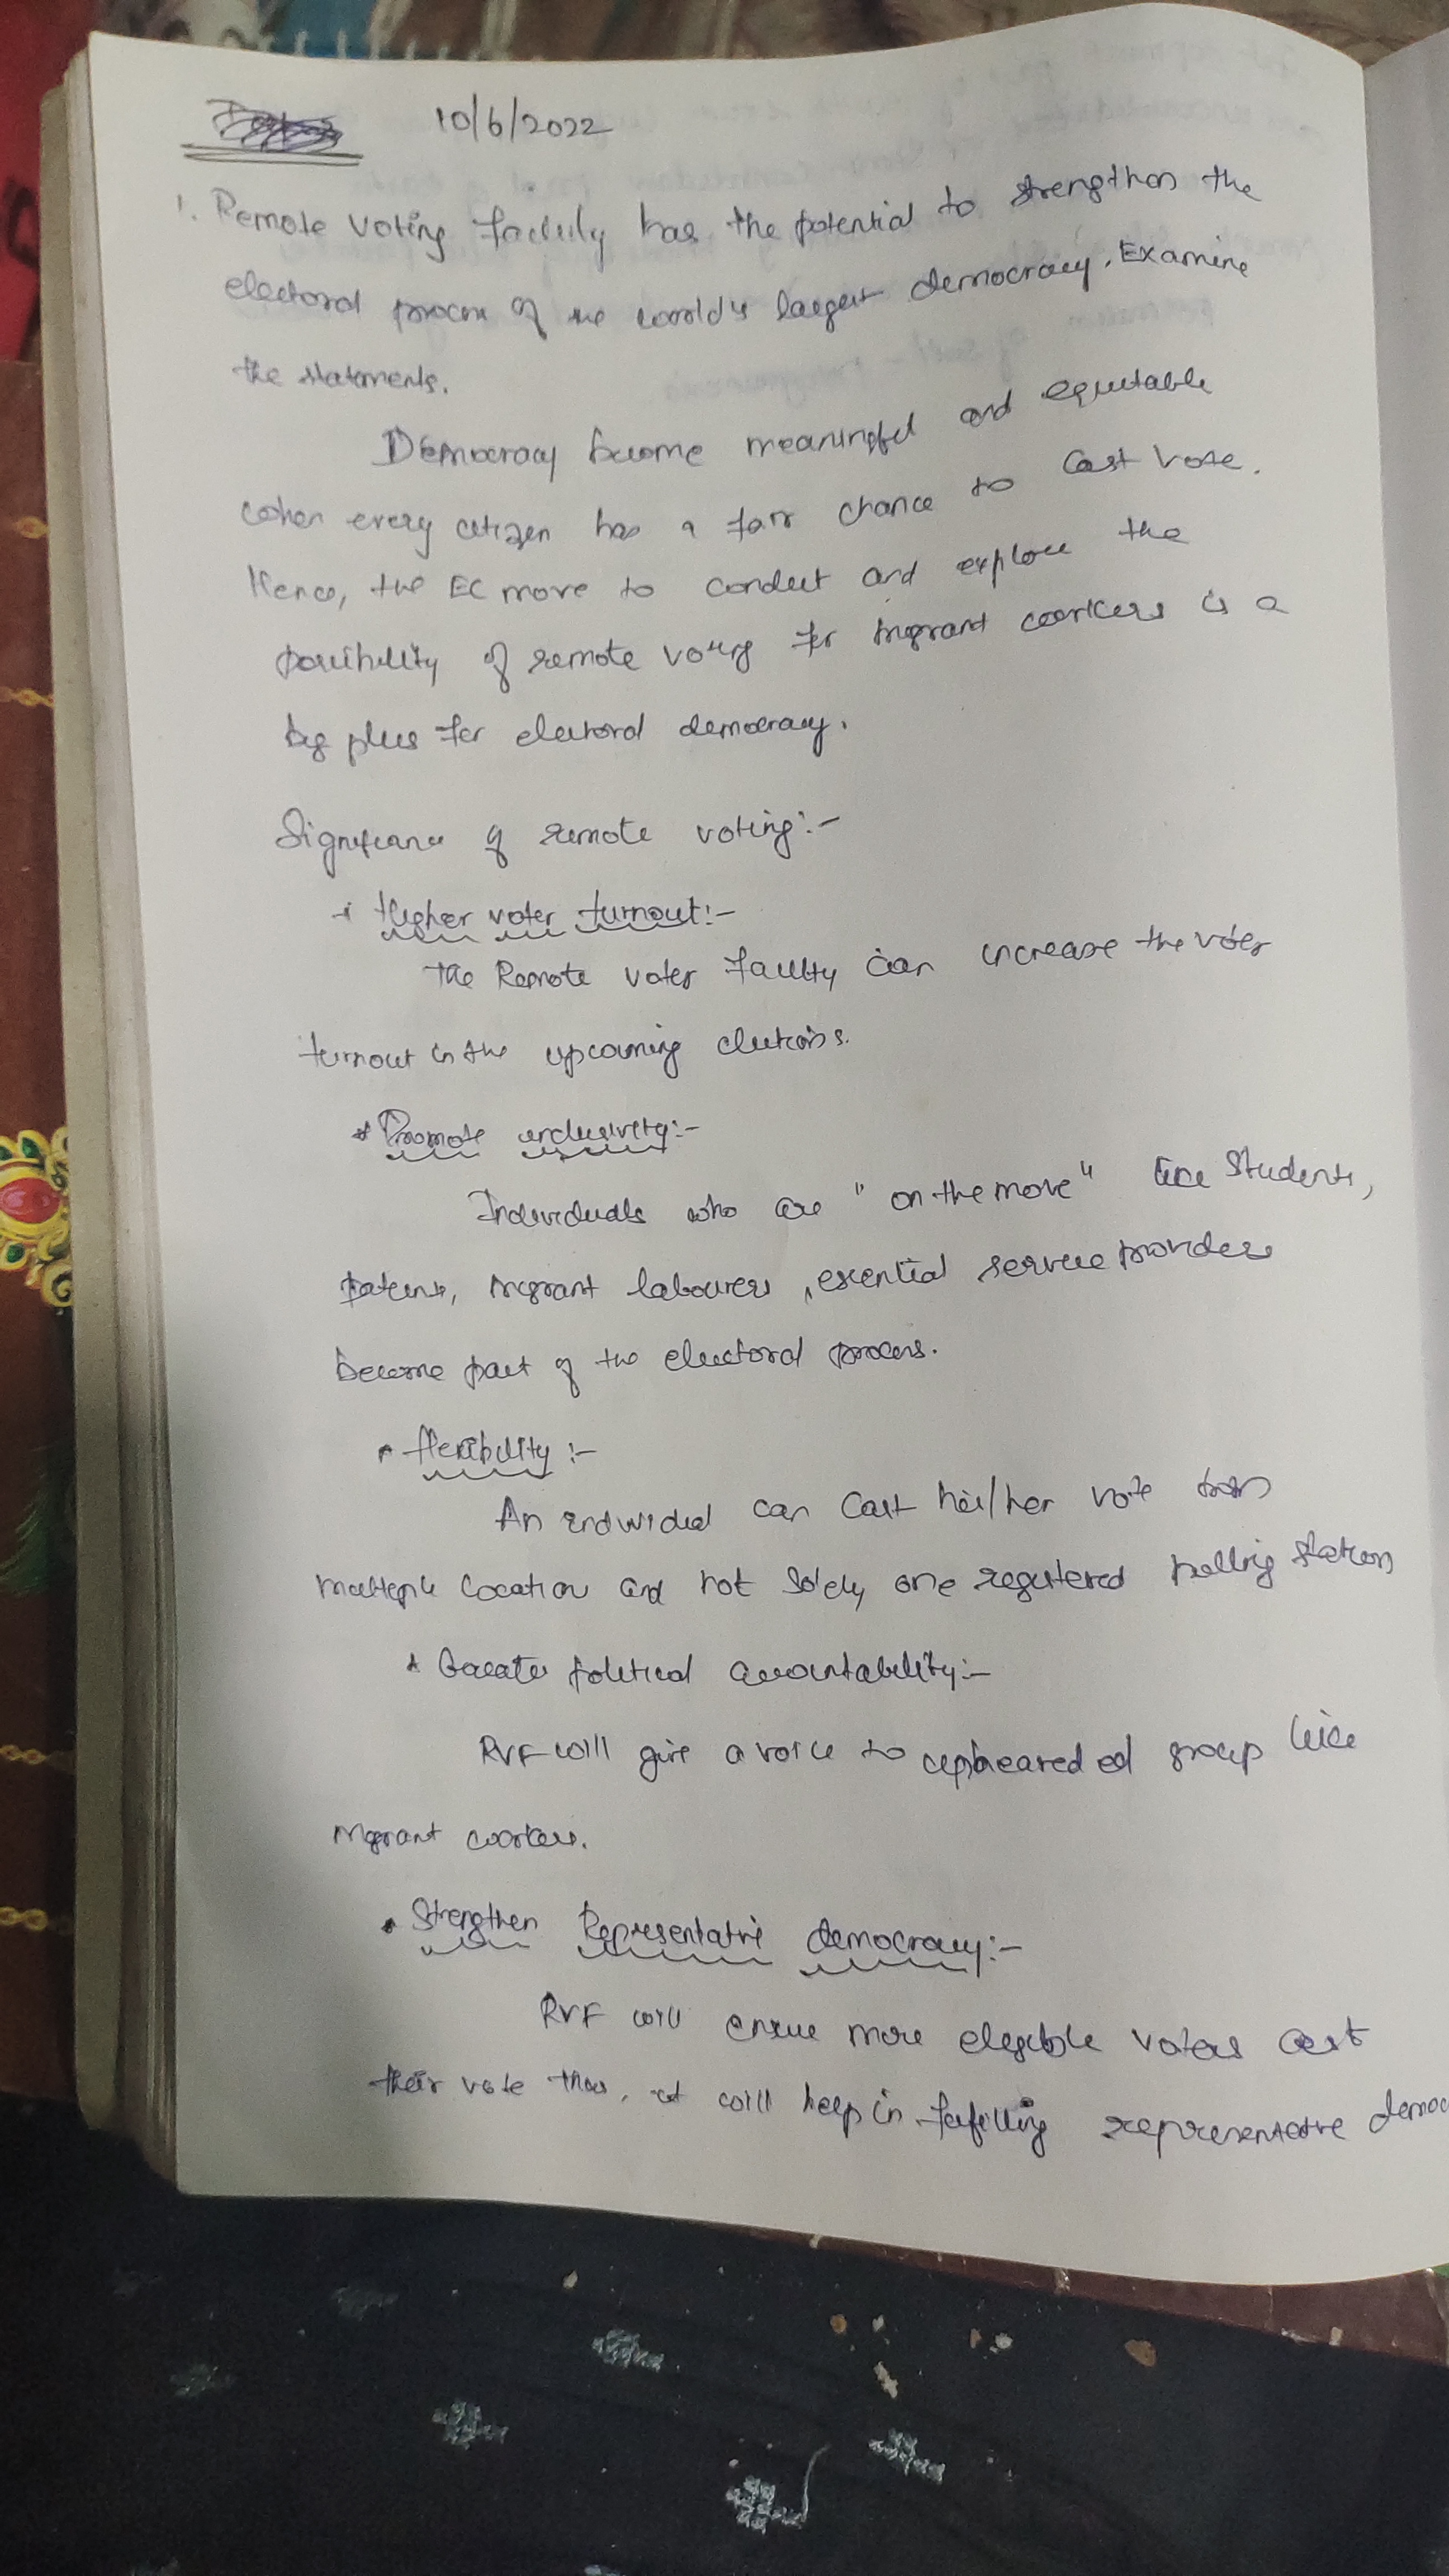 10/6/2022
1. Remote Voting facility has the potential to strengthen the
electoral process of the world's largest democracy. Examine
the statements.
Democracy become meaningful and equitable
when every citizen has a fair chance to cast vote.
Hence, the EC move to conduct and explore the
possibility of remote voting for migrant workers is a
big plus for electoral democracy.
Significance of remote voting:-
* Higher voter turnout:-
The Remote voter facility can increase the voter
turnout in the upcoming elections.
* Promote inclusivity:-
Individuals who are "on the move" like students,
patients, migrant labourers, essential service providers
become part of the electoral process.
* flexibility:-
An individual can cast his/her vote from
multiple location and not solely one registered polling station
* Greater political accountability:-
RVF will give a voice to group like
migrant workers.
* Strengthen Representative democracy:-
RVF will ensue more eligible voters cast
their vote thus, it will help in fulfilling representative democ